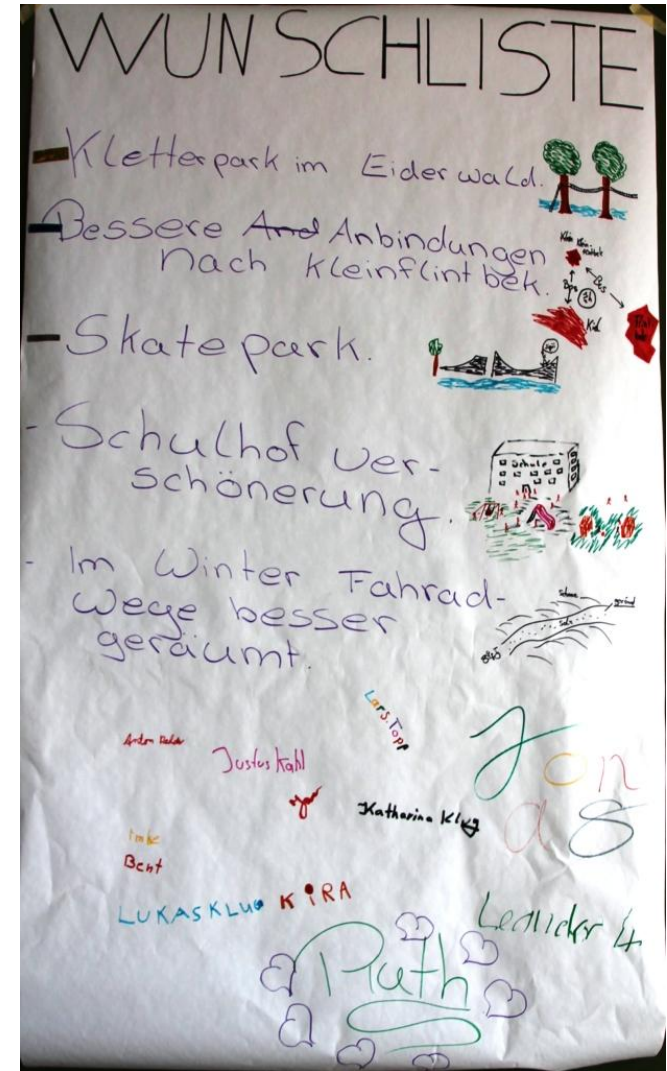 WUNSCHLISTE
- Kletterpark im Eiderwald.
- Bessere And Anbindungen
nach Kleinflintbek.
Kiel
- Skatepark.
- Schulhof ver-
schönerung.
Schule
- Im Winter Fahrad-
wege besser
geräumt.
Lars.Topp
Anton
Justus Kahl
Jonas
Katharina Klug
Imke
Bent
LUKAS KLUG KIRA
Leander
Ruth